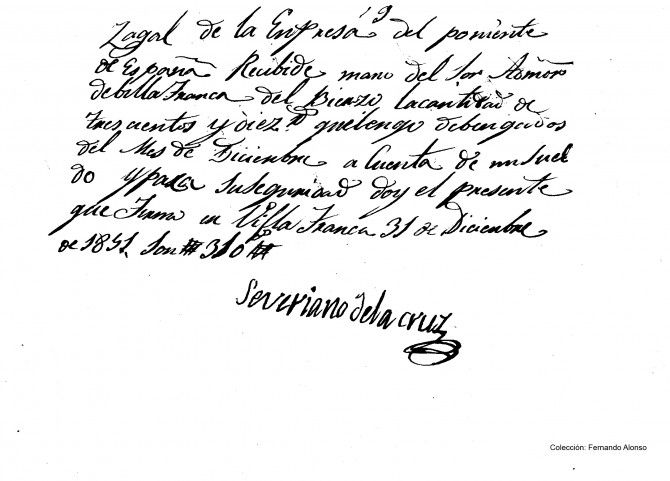 Zagal de la Empresa del poniente
de España Recibide mano del Sor Admor
debilla Franca del Bierzo lacantidad de
trescientos ydiez rs quetengo debengados
del Mes de Diciembre a Cuenta de mi Suel
do ypara Suseguridad doy el presente
que Firmo en Villa Franca 31 de Diciembre
de 1851 Son # 310 #
Severiano dela cruz
Colección: Fernando Alonso